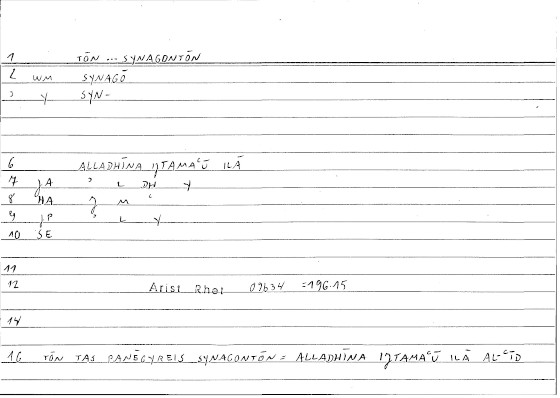 1 TŌN ... SYNAGONTŌN
2 WM SYNAGŌ
3 Y SYN-
6 ALLADHĪNA IǦTAMAʿŪ ILĀ
7 JA ʾ L DH Y
8 HA Ǧ M ʿ
9 JP ʾ L Y
10 SE
11
12 Arist Rhet 09634 = 196.15
14
16 TŌN TAS PANĒGYREIS SYNAGONTŌN = ALLADHĪNA IǦTAMAʿŪ ILĀ AL-ʿĪD